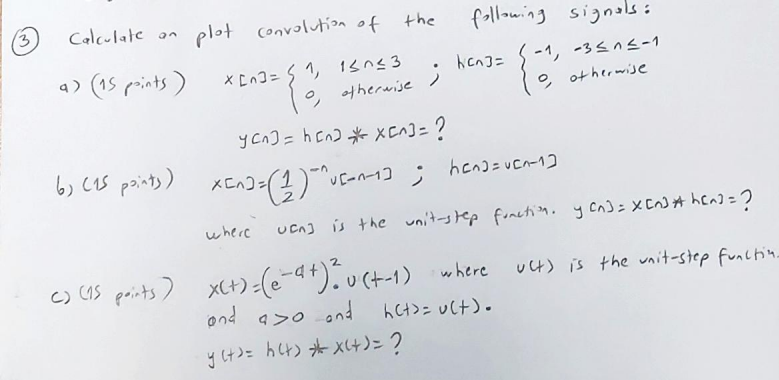 ③ Calculate an plot convolution of the following signals:
a) (15 points) x[n]= { 1, 1≤n≤3 ; h[n]= { -1, -3≤n≤-1
0, otherwise 0, otherwise
y[n]= h[n] * x[n]= ?
b) (15 points) x[n]=(1/2)^-n u[-n-1] ; h[n]=u[n-1]
where u[n] is the unit-step function. y[n]= x[n] * h[n]= ?
c) (15 points) x(t)=(e^-at)^2 . u(t-1) where u(t) is the unit-step functin.
and a>0 and h(t)= u(t).
y(t)= h(t) * x(t)= ?